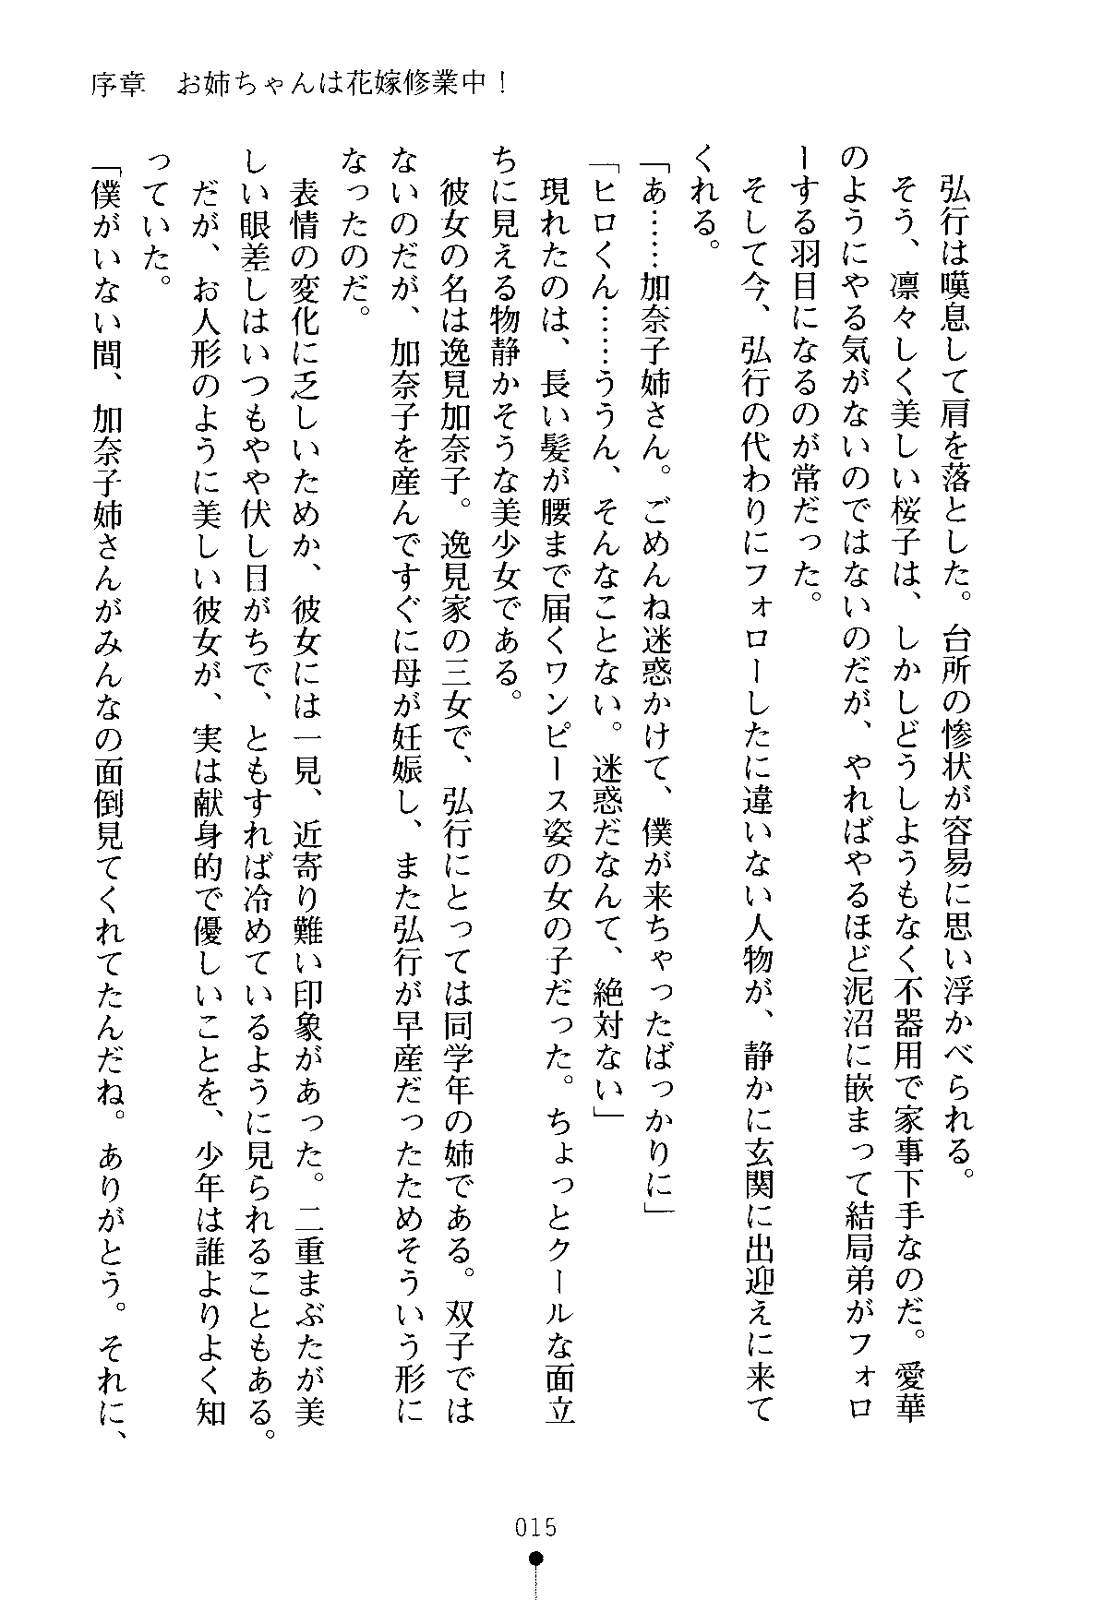 序章　お姉ちゃんは花嫁修業中！
　弘行は嘆息して肩を落とした。台所の惨状が容易に思い浮かべられる。
　そう、凛々しく美しい桜子は、しかしどうしようもなく不器用で家事下手なのだ。愛華
のようにやる気がないのではないのだが、やればやるほど泥沼に嵌まって結局弟がフォロ
ーする羽目になるのが常だった。
　そして今、弘行の代わりにフォローしたに違いない人物が、静かに玄関に出迎えに来て
くれる。
「あ……加奈子姉さん。ごめんね迷惑かけて、僕が来ちゃったばっかりに」
「ヒロくん……ううん、そんなことない。迷惑だなんて、絶対ない」
　現れたのは、長い髪が腰まで届くワンピース姿の女の子だった。ちょっとクールな面立
ちに見える物静かそうな美少女である。
　彼女の名は逸見加奈子。逸見家の三女で、弘行にとっては同学年の姉である。双子では
ないのだが、加奈子を産んですぐに母が妊娠し、また弘行が早産だったためそういう形に
なったのだ。
　表情の変化に乏しいためか、彼女には一見、近寄り難い印象があった。二重まぶたが美
しい眼差しはいつもやや伏し目がちで、ともすれば冷めているように見られることもある。
　だが、お人形のように美しい彼女が、実は献身的で優しいことを、少年は誰よりよく知
っていた。
「僕がいない間、加奈子姉さんがみんなの面倒見てくれてたんだね。ありがとう。それに、
015